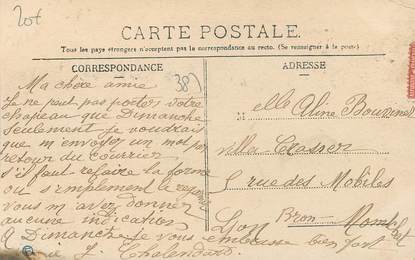 20f
CARTE POSTALE.
Tous les pays étrangers n'acceptent pas la correspondance au recto. (Se renseigner à la poste)
CORRESPONDANCE
387
Ma chère amie
Je ne peut pas porter votre
chapeau que Dimanche
Seulement je voudrais
que m'envoyer un mot par
retour du courrier
s'il faut refaire la forme
ou simplement le
vous m'avez donner
aucune indication
A Dimanche je vous embrasse bien fort
J Chalendard
ADRESSE
Melle Aline
villa
rue des Mobiles
Bron-
Lyon